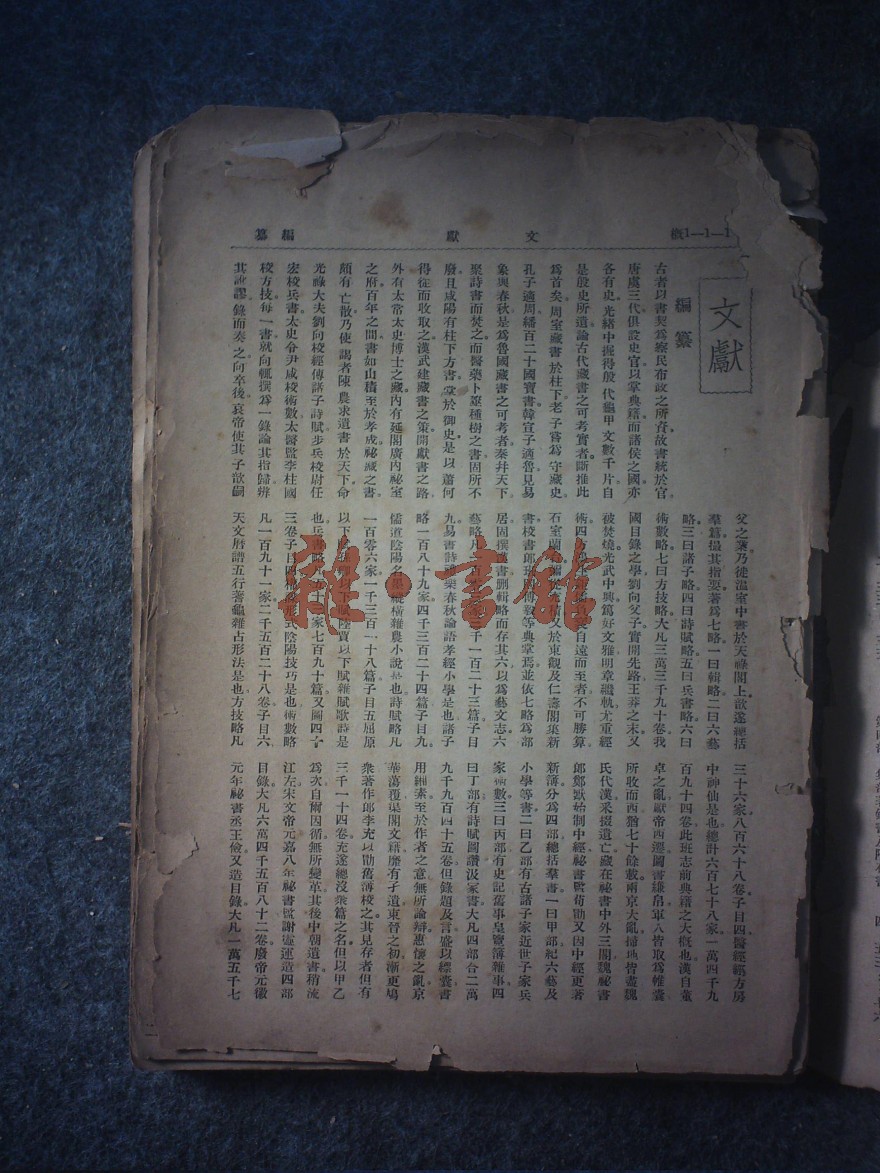 概1—1—1
文獻
編纂
文獻
編纂
古者以書契爲察民布政之所資故書統於官
唐虞三代俱設史官以掌典籍而諸侯之國亦
各有史光緒中掘得殷代龜甲文數千片自
是殷史所遺論古代藏書之可考實者斷推此
爲首矣周室藏書於柱下老子嘗爲守藏史
孔子適周繙百二十國寶書韓宣子適魯見易
象與春秋是爲魯國藏書之可考者秦幷天下
聚詩書而焚之而醫藥卜筮種樹之書固所不
廢且咸陽有柱下方書掌於御史是以蕭何
得從而收取之漢武建藏書之策開獻書之路
外有太常太史博士之藏內有延閣廣內祕室
之府百年之間書如山積至於孝成祕藏之書
頗有亡散乃使謁者陳農求遺書於天下命
光祿大夫劉向校經傳諸子詩賦步兵校尉任
宏校兵書太史令尹咸校術數太醫監李柱國
校方技每一書就向輒撰爲一錄論其指歸辨
其訛謬錄而奏之向卒後哀帝使其子歆嗣
父之業乃徙溫室中書於天祿閣上歆遂總括
羣篇撮其指要著爲七略一曰輯略二曰六藝
略三曰諸子略四曰詩賦略五曰兵書略六曰
術數略七曰方技略大凡三萬三千九十卷我
國目錄之學劉向父子實開先路王莽之末又
被焚燒光武中興篤好文雅明章繼軌尤重經
術四方鴻生鉅儒負袠自遠而至者不可勝算
石室蘭臺彌以充積又於東觀及仁壽閣集新
書校書郎班固傅毅等典掌焉並依七略爲部
居固撰漢書删輯略而存其六以爲藝文志六
藝略凡一百三家三千一百二十三篇子目
九易書詩禮樂春秋論語孝經小學是也諸子
略一百八十九家四千三百二十四篇子目九
儒道陰陽名墨縱橫雜農小說是也詩賦略凡
一百零六家一千三百一十八篇子目五屈原
以下賦陸賈以下賦雜賦歌詩是
也兵書略凡五十三家七百九十篇又圖四十
三卷子目四權謀形式陰陽技巧是也術數略
凡一百九十一家二千五百二十八卷子目六
天文曆譜五行蓍龜雜占形法是也方技略凡
三十六家八百六十八卷子目四醫經經方房
中神仙是也總計六百七十八家一萬四千九
百九十四卷此班志前典籍之大槪也漢自董
卓之亂獻帝西遷圖書縑帛軍人皆取爲帷囊
所收而西猶七十餘載兩京大亂掃地皆盡魏
氏代漢采掇遺亡藏在祕書中外三閣魏祕書
郎鄭默始制中經祕書監荀勗又因中經更著
新簿分爲四部總括羣書一曰甲部紀六藝及
小學等書二曰乙部有古諸子家近世子家兵
家術數三曰丙部有史記舊事皇覽簿雜事四
曰丁部有詩賦圖讚汲冢書大凡四部合二萬
九千九百四十五卷但錄題及言盛以縹囊書
用緗素至於作者之意無所論辯惠懷之亂京
華蕩覆渠閣文籍靡有孑遺東晉之初漸更鳩
衆著作郎李充以勗舊簿校之其見存者但有
三千一十四卷充遂總沒衆篇之名但以甲乙
爲次自爾因循無所變革其後中朝遺書稍流
江左宋文帝元嘉八年祕書監謝靈運造四部
目錄大凡六萬四千五百八十二卷廢帝元徽
元年祕書丞王儉又造目錄大凡一萬五千七
雜·書館